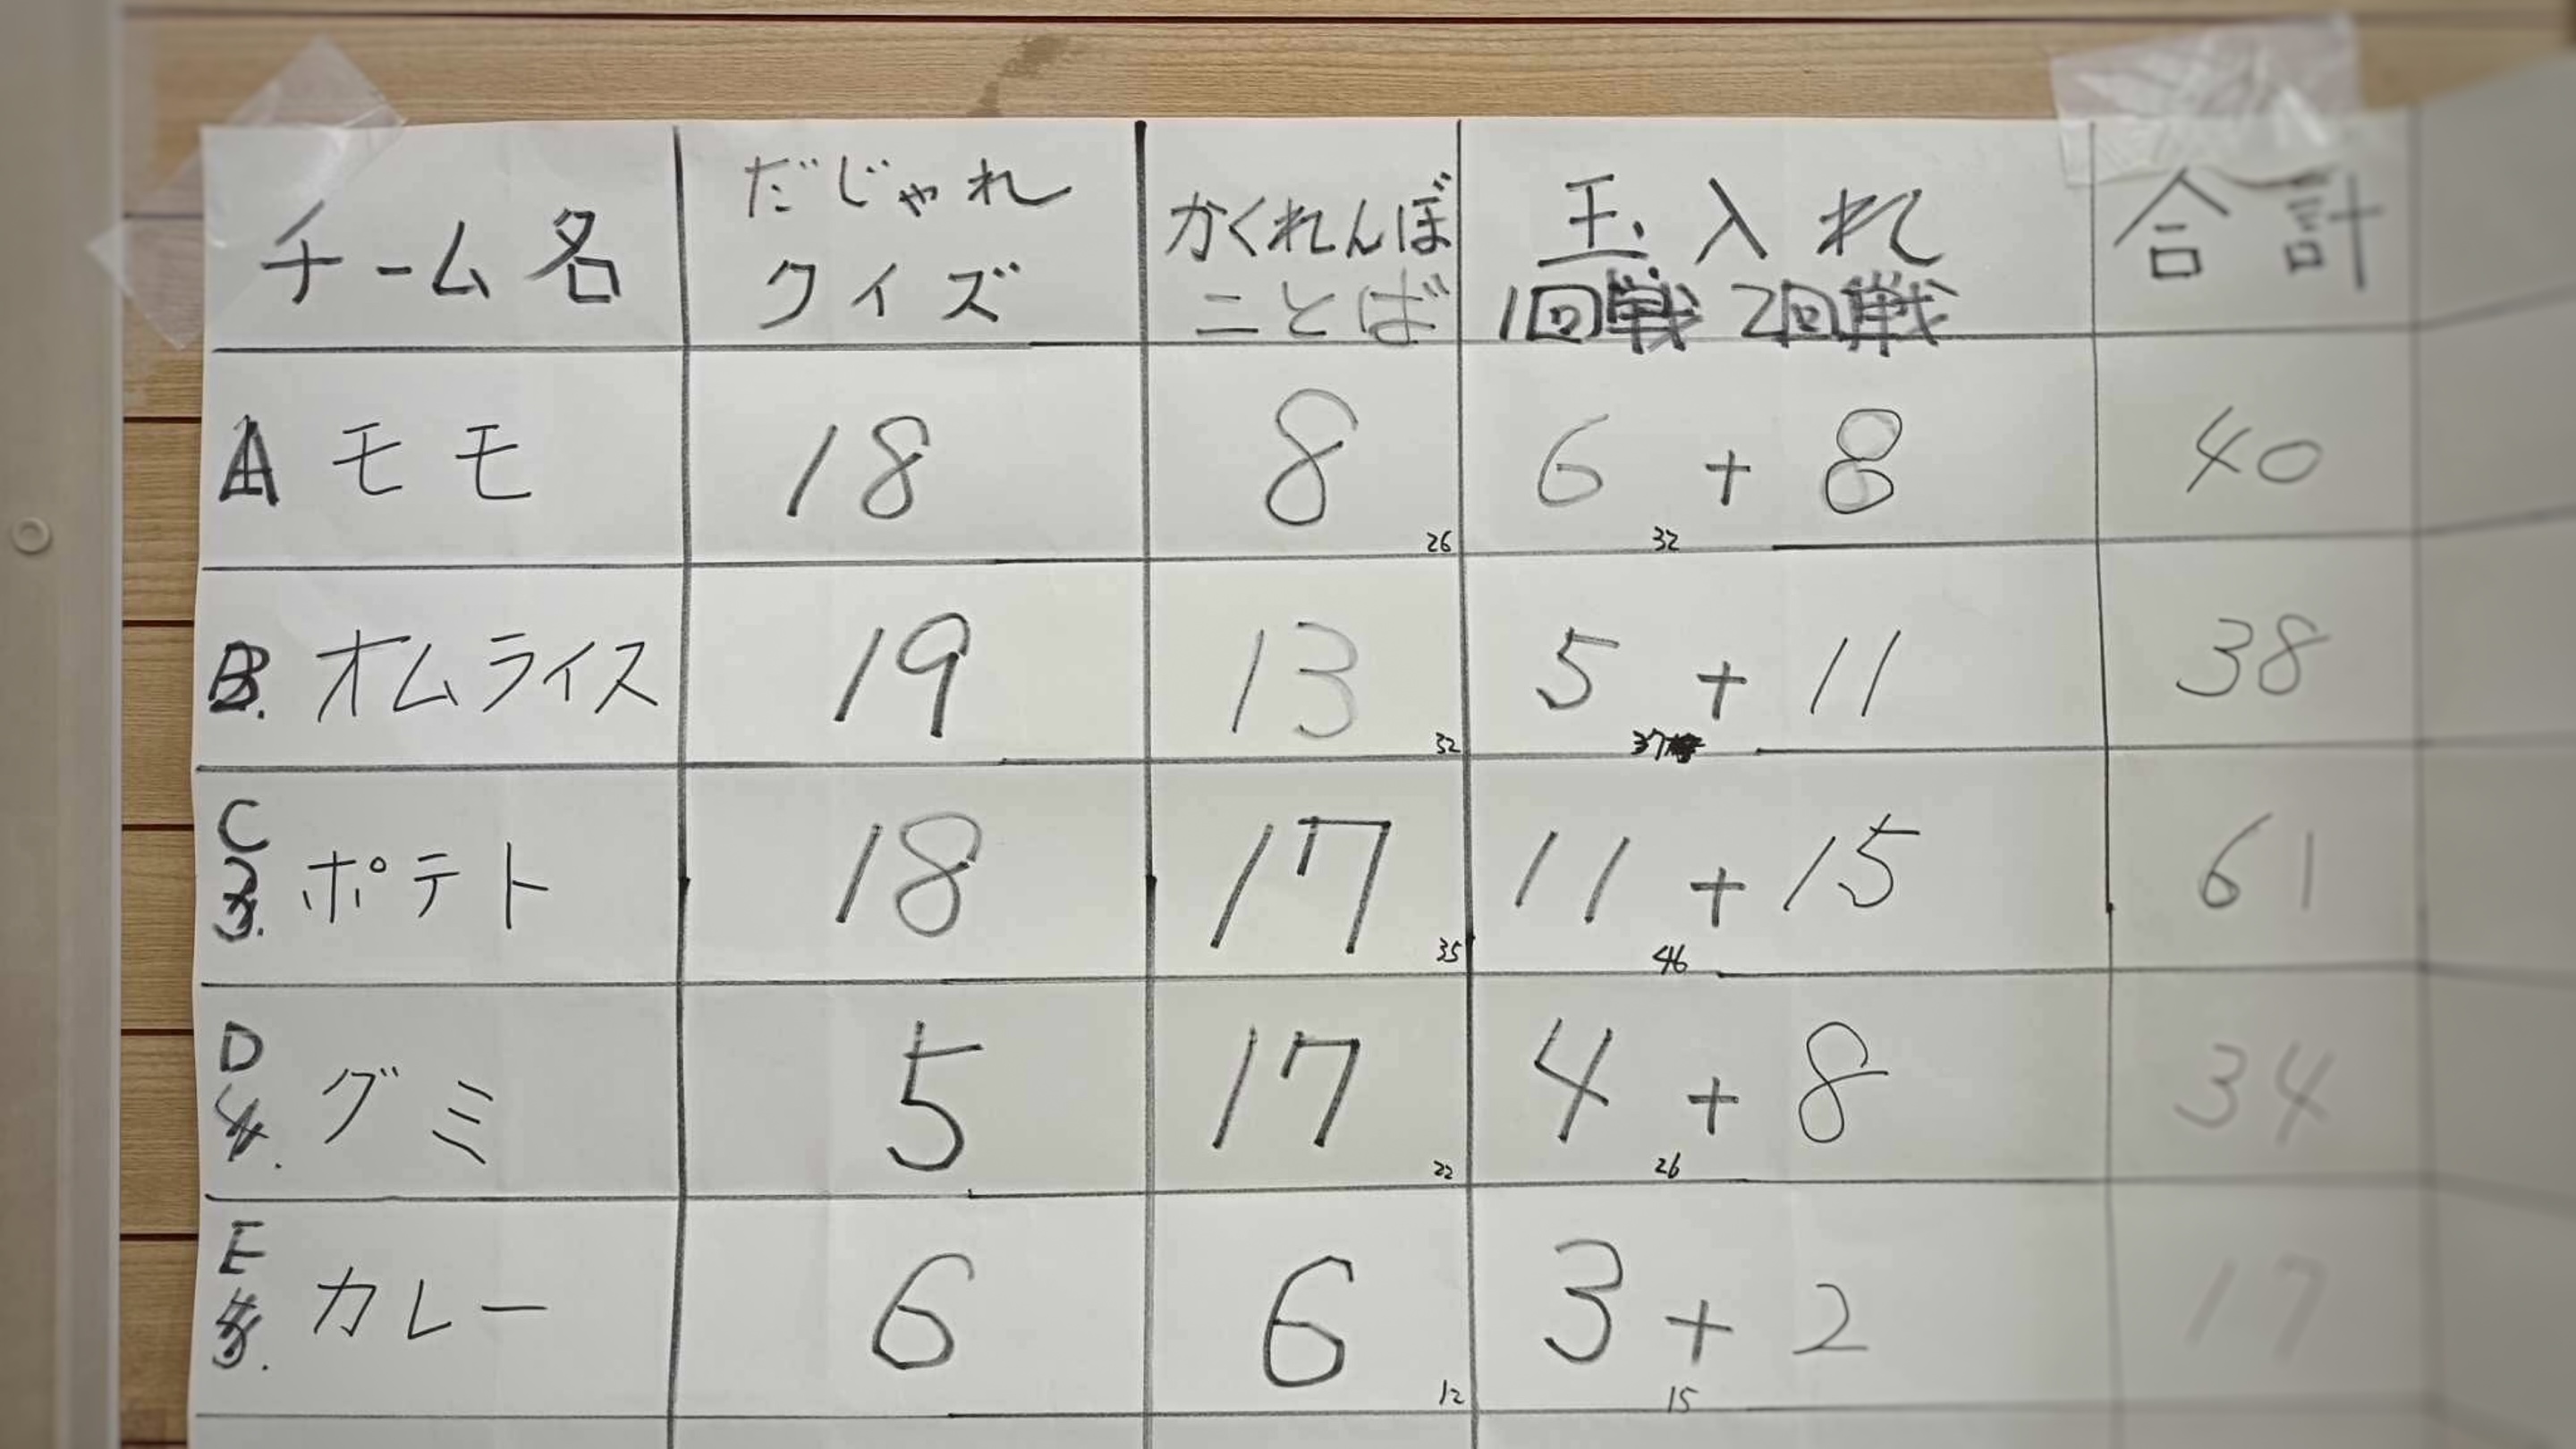 チーム名 だじゃれクイズ かくれんぼことば 玉入れ 1回戦 2回戦 合計
A モモ 18 8 26 6 + 8 32 40
B. オムライス 19 13 32 5 + 11 37 38
C ポテト 18 17 35 11 + 15 46 61
D グミ 5 17 22 4 + 8 26 34
E カレー 6 6 12 3 + 2 15 17